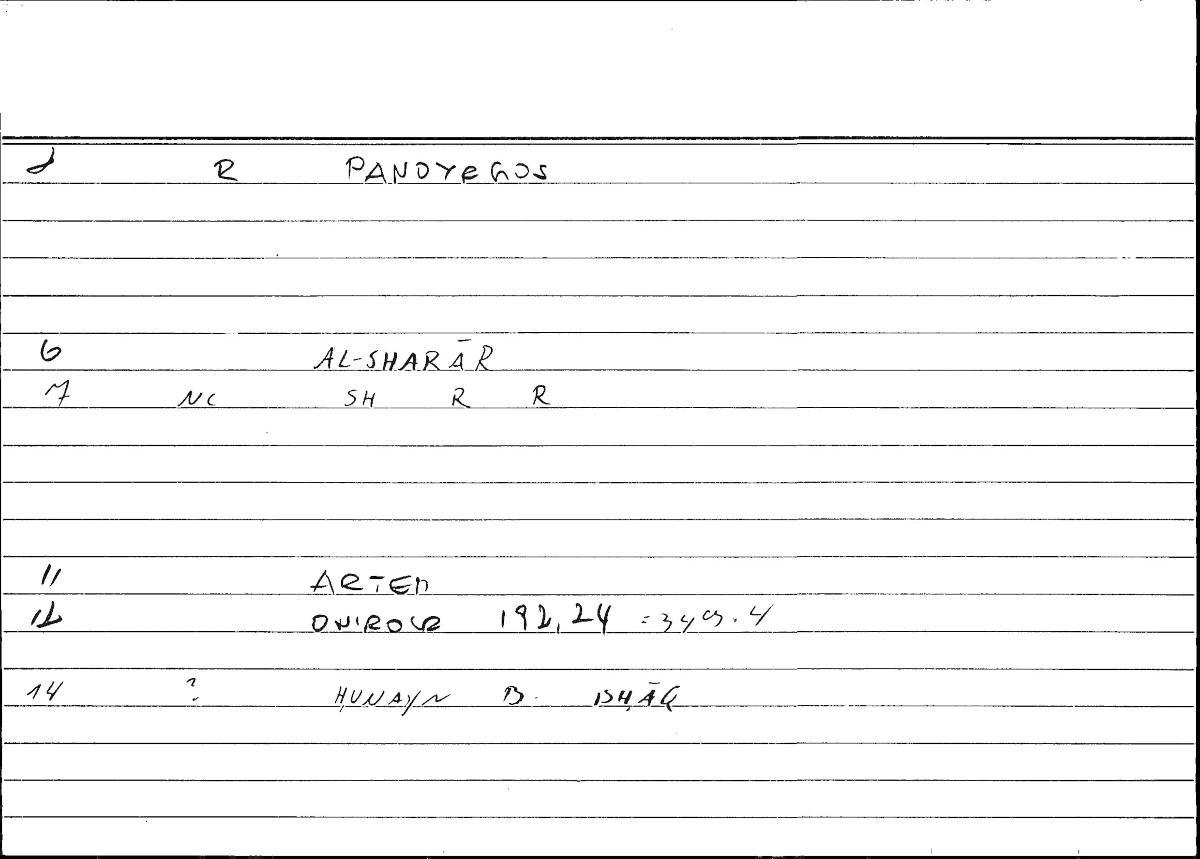 2 R PANOYRGOS
6 AL-SHARĀR
7 NC SH R R
11 ARTEM
12 ONIROCR 192,24 =349.4
14 ? ḤUNAYN B. ISḤĀQ